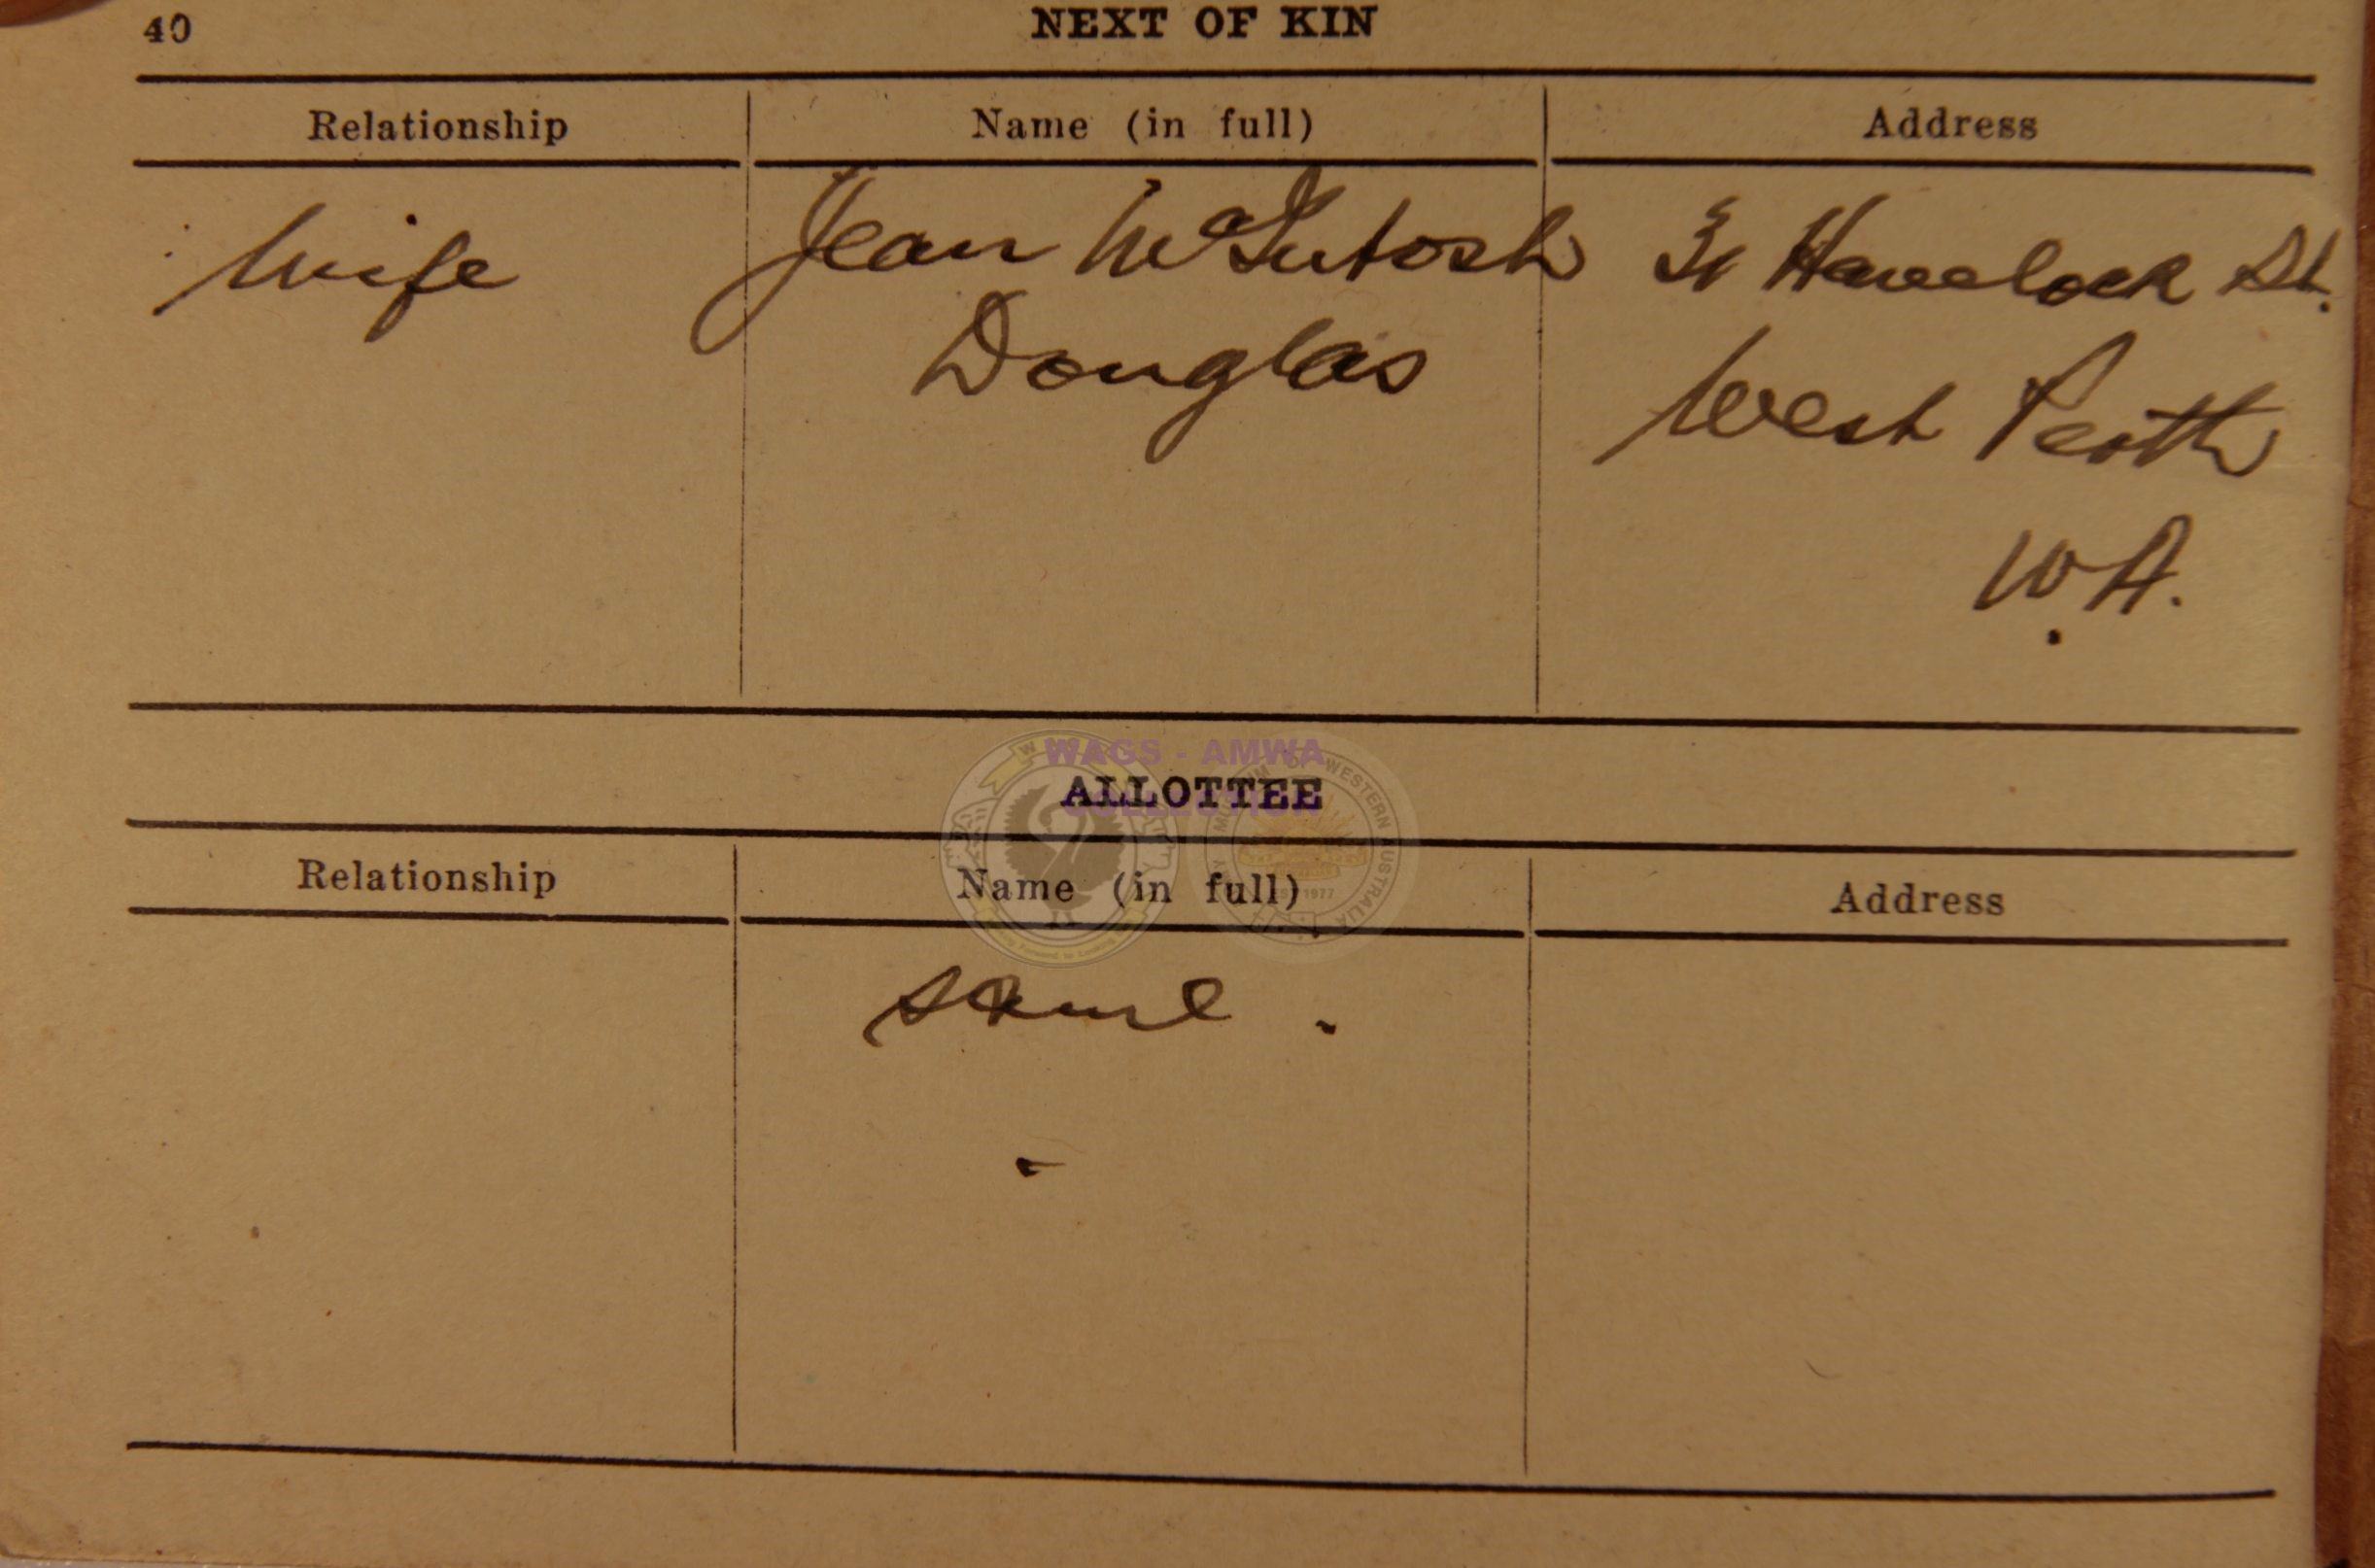 40 NEXT OF KIN
Relationship Name (in full) Address
Wife Jean McIntosh Havelock St.
Douglas West Perth
W.A.
WAGS - AMWA
COLLECTION
ALLOTTEE
Relationship Name (in full) Address
same .